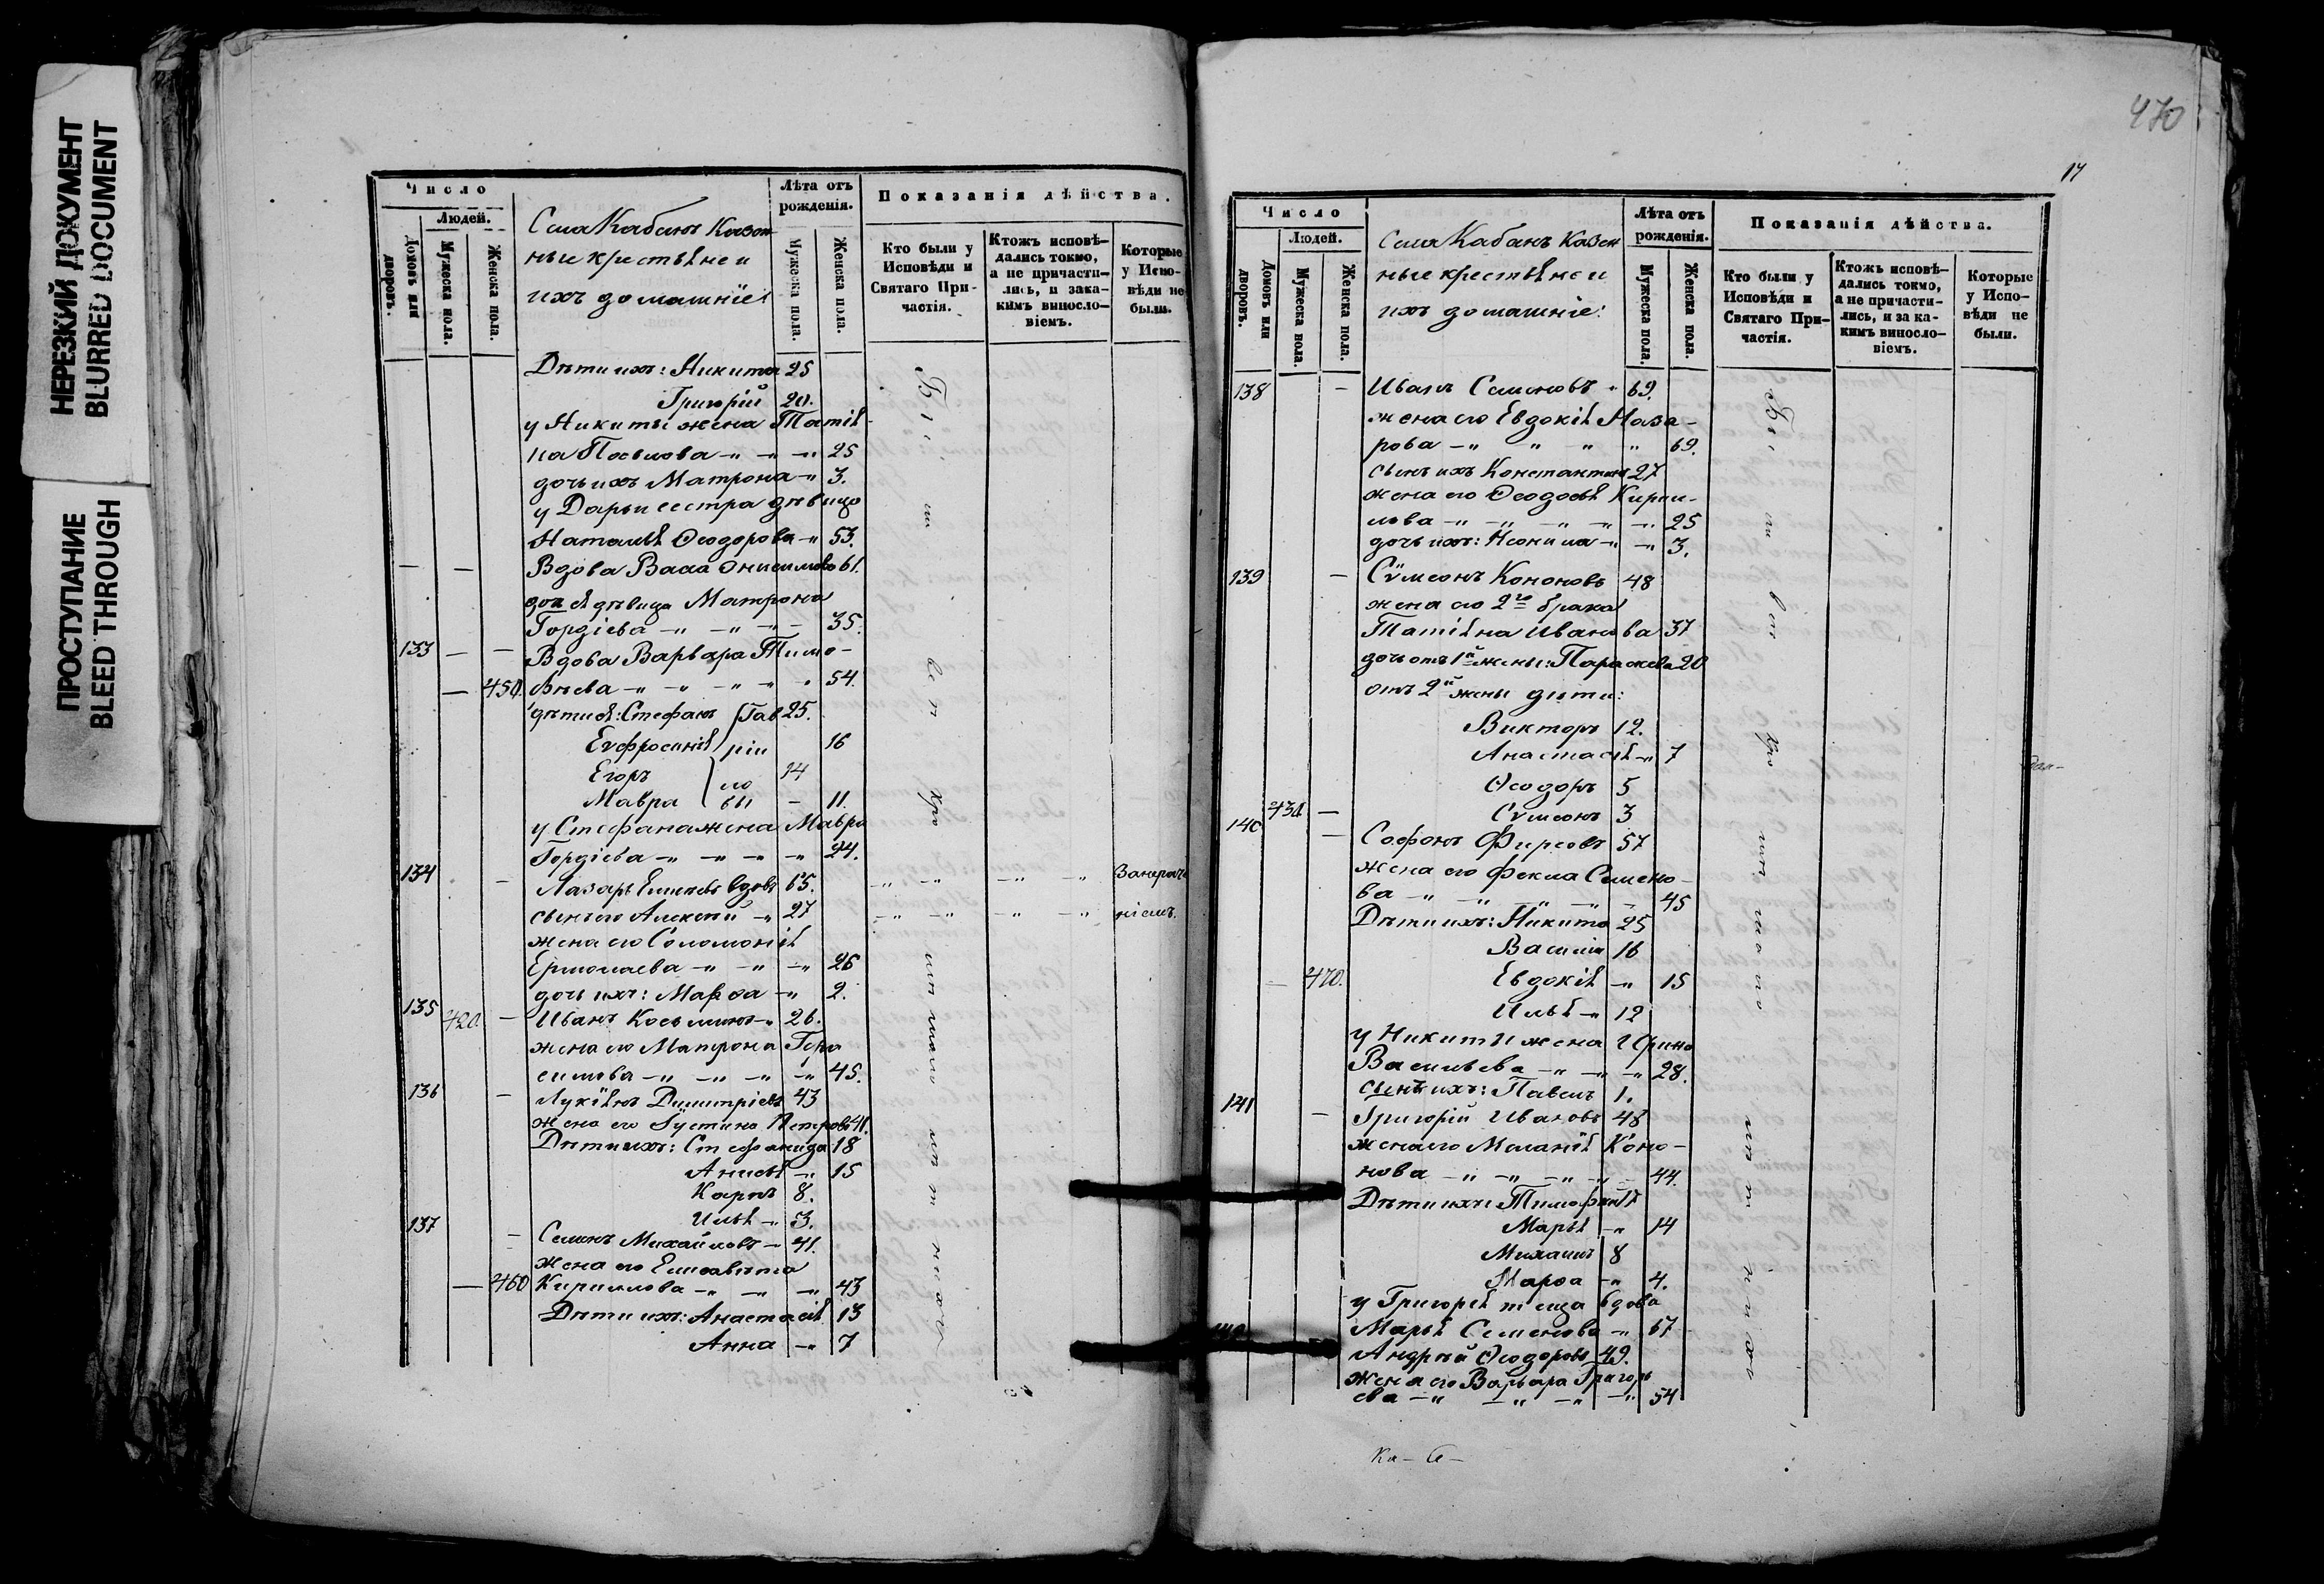 НЕРЕЗКИЙ ДОКУМЕНТ
BLURRED DOCUMENT
ПРОСТУПАНИЕ
BLEED THROUGH
Число
Людей.
Домовъ или дворовъ.
Мужеска пола.
Женска пола.
Села Кабанъ Казен
ные крестьяне и
ихъ домашніе
Лѣта отъ рожденія.
Мужеска пола.
Женска пола.
Показанія дѣйства.
Кто были у Исповѣди и Святаго При-
частія.
Ктожъ исповѣ-
дались токмо,
а не причасти-
лись, и зака-
кимъ виносло-
віемъ.
Которые
у Испо-
вѣди не
были.
Дѣти ихъ: Никита 25
Григорій 20.
у Никиты жена Татія
на - " - " - " 25
дочь ихъ Матрона - " 3.
у Дарьи сестра дѣвица
Наталія Ѳеодорова - " 53.
— — Вдова Васса Онисимова 61.
дѣвица Матрона
Гордіева - " - " - " - 35.
133 — — Вдова Варвара Тимо-
— 450. ѳѣева - " - " - " - " 54.
дѣти ея: Стефанъ Гав 25.
Евфросинія ріи 16
Егоръ ло 14
Мавра вы - 11.
у Стефана жена Мавра
Гордіева - " - " - " - " 24.
134 — Лазарь вдовъ 65. - " - " - " - " Занерач
сынъ его Алексѣй - " 27 - " - " - " - " ніемъ.
жена его Соломонія
Ермолаева - " - " - " 26
дочь ихъ: Марѳа - " 2.
135 420. — Иванъ Косьминъ - " 26.
жена его Матрона Гера
симова - " - " - " - " 45.
136 — Лукіянъ Димитріевъ 43
жена его Іустина Петрова 41.
Дѣти ихъ: Стефанида 18
Анисья - " 15
Карпъ 8.
Илья - " 3.
137 — Семенъ Михайловъ - 41.
жена его Елисавета
— 460 Кириллова - " - " - " 43
Дѣти ихъ: Анастасія 13
Анна - " 7
470
14
Число
Людей.
Домовъ или дворовъ.
Мужеска пола.
Женска пола.
Села Кабанъ Казен
ные крестьяне и
ихъ домашніе:
Лѣта отъ рожденія.
Мужеска пола.
Женска пола.
Показанія дѣйства.
Кто были у
Исповѣди и
Святаго При-
частія.
Ктожъ исповѣ-
дались токмо,
а не причасти-
лись, и за ка-
кимъ виносло-
віемъ.
Которые
у Испо-
вѣди не
были.
138 — Иванъ Семеновъ " 69.
жена его Евдокія Наза-
рова - " " " " 69.
сынъ ихъ Константинъ 27
жена его Ѳеодосья Кирил-
лова - " - " - " - " - " 25
дочь ихъ: Неонила - " - " 3.
139 — Сѵмеонъ Кононовъ 48
жена его 2го брака
Татіяна Иванова 37
дочь отъ 1й жены: Параскева 20
отъ 2й жены дѣти:
Викторъ 12.
Анастасія - " 7
Ѳеодоръ 5
430. — Сѵмеонъ 3
140 — Софонъ Фирсовъ 57
жена его Фекла Семено-
ва - " - " - " - " - 45
Дѣти ихъ: Никита 25
Василій 16
— 470. Евдокія - " 15
Илья - " 12
у Никиты жена Ирина
Васильева - " - " - " 28.
сынъ ихъ: Павелъ 1.
141 — Григорій Ивановъ 48
жена его Меланія Коно-
нова - " - " - " - " - 44.
Дѣти ихъ: Тимофей 17
Марья - " 14
Михаилъ 8
Марѳа - " 4.
у Григорія теща вдова
Марья Семенова - " 67
Андрей Ѳеодоровъ 49.
жена его Варвара Григорь
ева - " - " - " - " 54